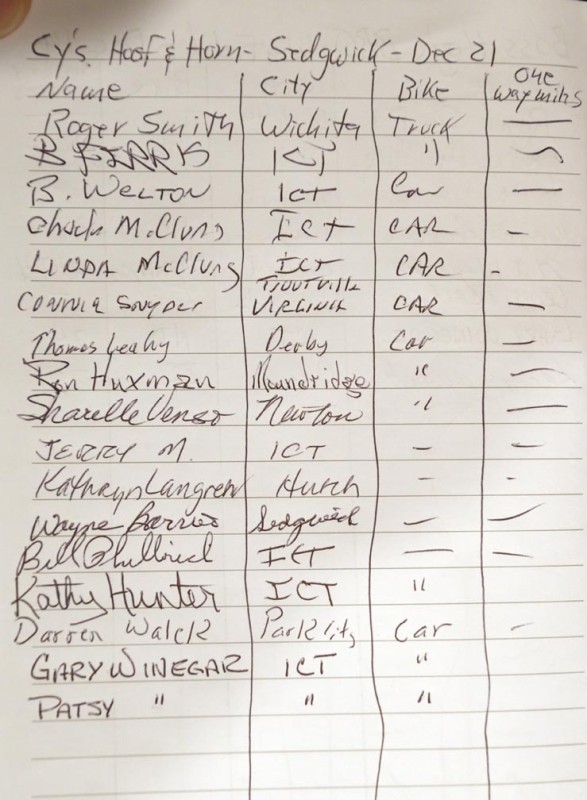 Cy's Hoof & Horn - Sedgwick - Dec 21
Name City Bike One way miles
Roger Smith Wichita Truck —
B ICT " —
B. WELTON ICT Car —
Chuck McClung ICT CAR -
LINDA McClung ICT CAR -
CONNIE SNYDER TROUTVILLE VIRGINIA CAR —
Thomas Leahy Derby Car —
Ron Huxman Moundridge " —
Sharelle Newton " —
JERRY M. ICT — —
Kathryn Langrew Hutch - -
Wayne Sedgwick — —
Bill ICT — —
Kathy Hunter ICT "
Darren Walck Park City Car -
GARY WINEGAR ICT "
PATSY " " "